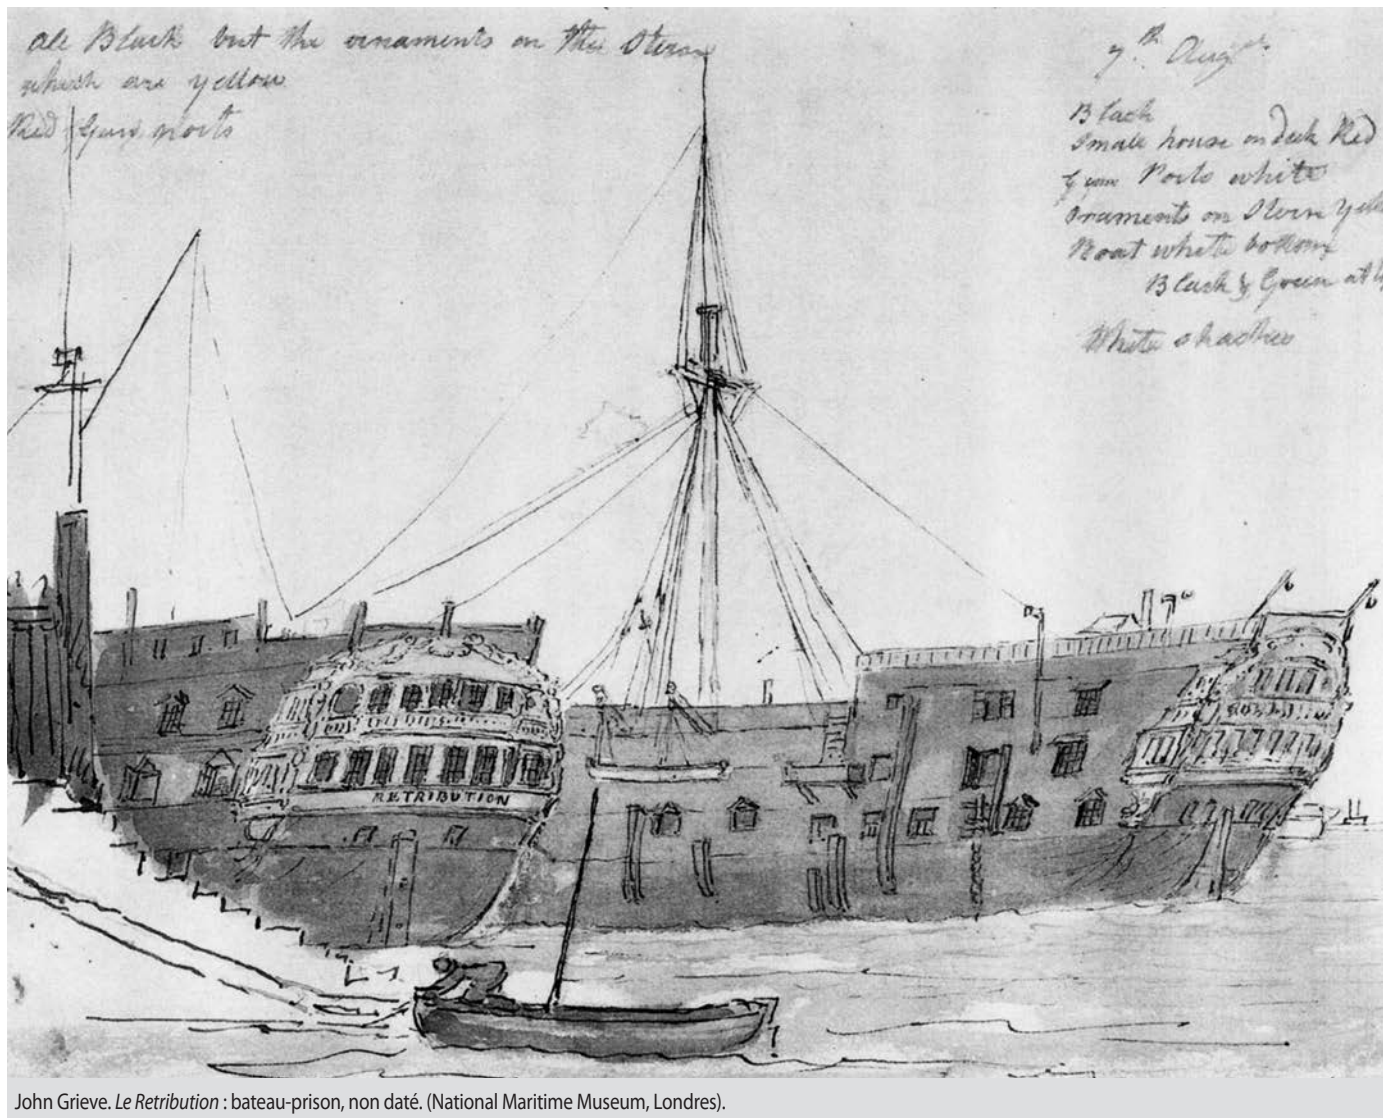 all Black but the ornaments on the Stern
which are yellow
Red Gun ports
7th Augst
Black
Small house on deck Red
Ports white
ornaments on Stern
Boat white bottom
Black & Green at
White
RETRIBUTION
John Grieve. Le Retribution : bateau-prison, non daté. (National Maritime Museum, Londres).